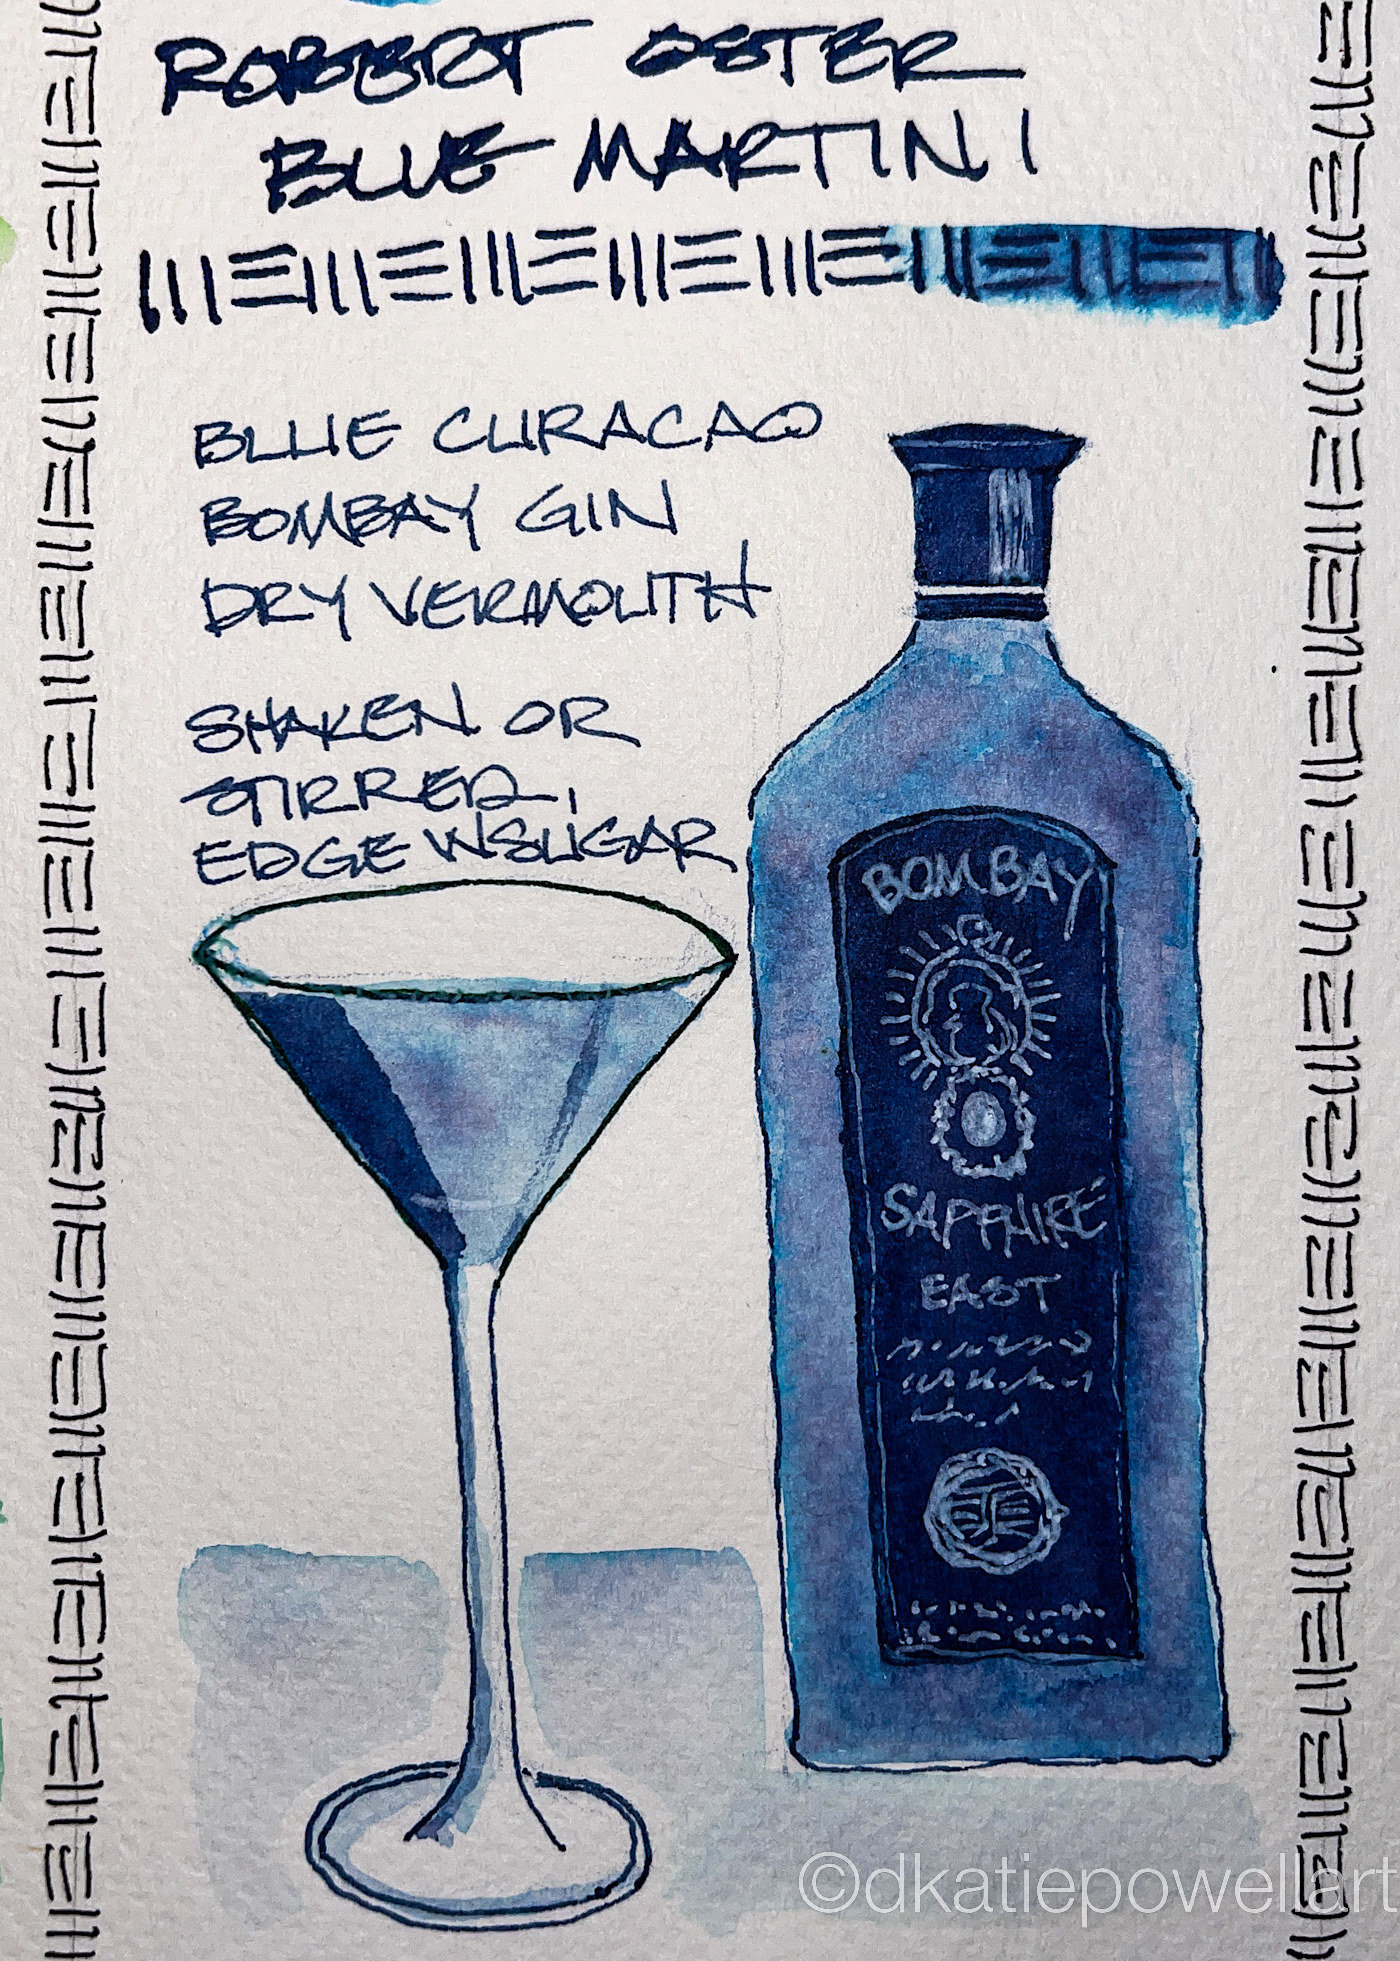 ROBERT OSTER
BLUE MARTINI
BLUE CURACAO
BOMBAY GIN
DRY VERMOUTH
SHAKEN OR
STIRRED,
EDGE W SUGAR
BOMBAY
SAPPHIRE
EAST
©dkatiepowellart